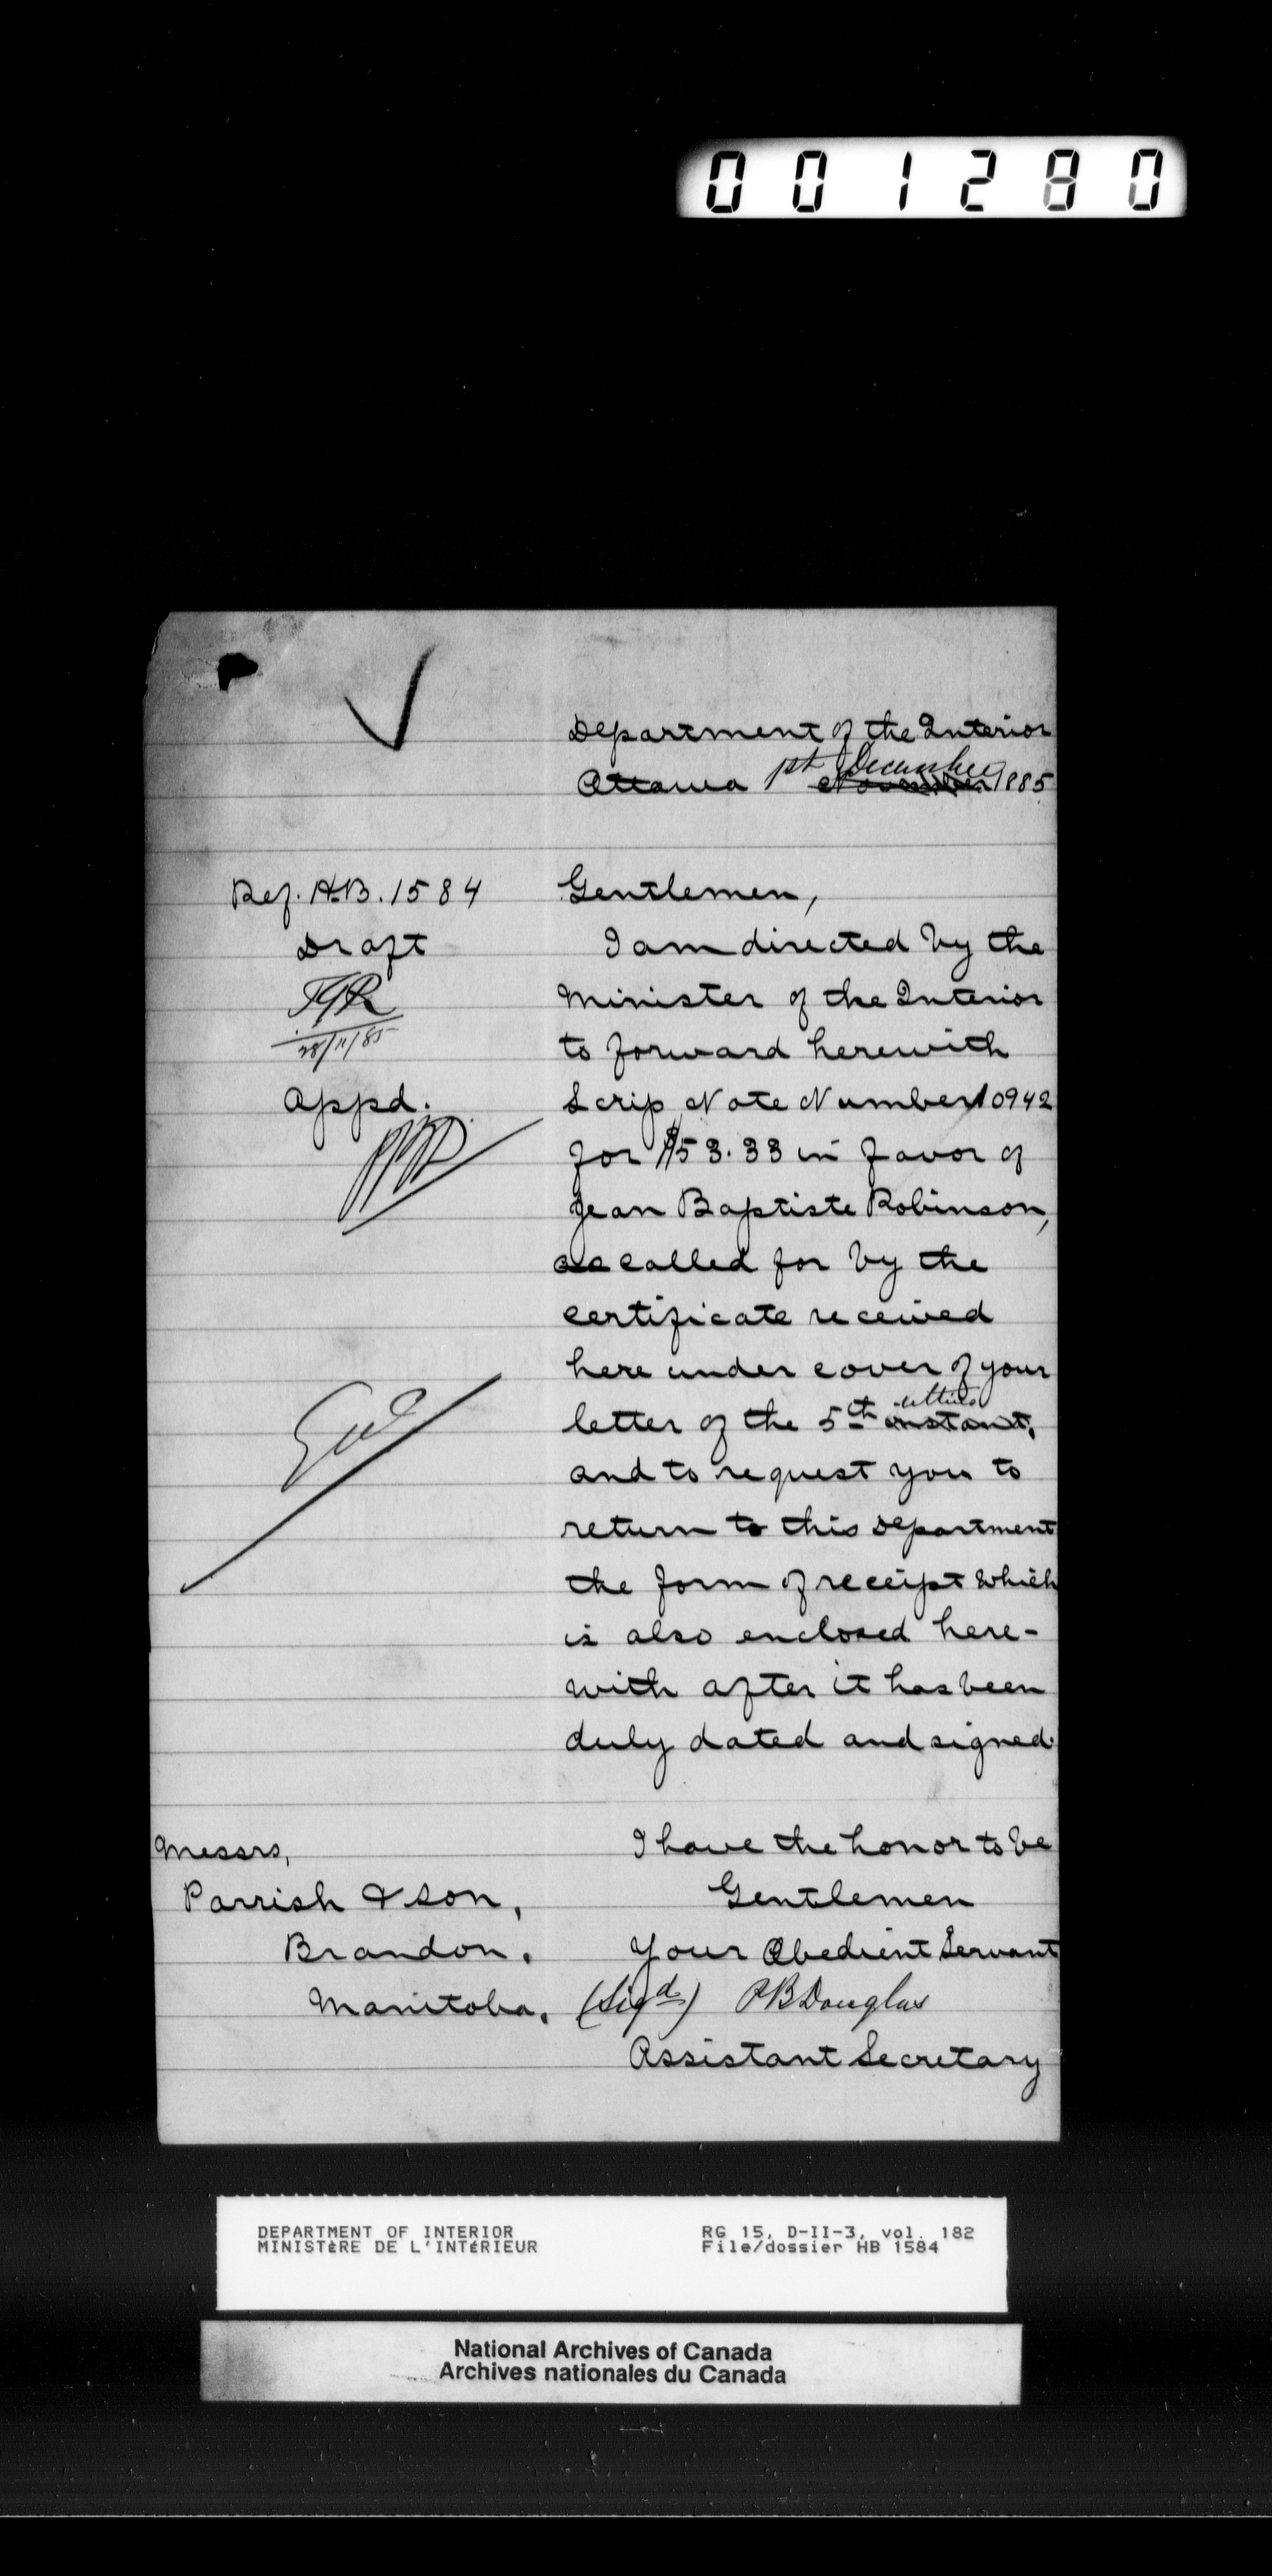 001280
Department of the Interior
Ottawa 1st December November 1885
Ref. HB. 1584
Draft
28/11/85
Appd.
Gentlemen,
I am directed by the
Minister of the Interior
to forward herewith
Scrip Note Number 10942
for $53.33 in favor of
Jean Baptiste Robinson,
as called for by the
certificate received
here under cover of your
letter of the 5th ultimo instant,
and to request you to
return to this Department
the form of receipt which
is also enclosed here-
with after it has been
duly dated and signed.
I have the honor to be
Gentlemen
Your Obedient Servant
(Sigd) P B Douglas
Assistant Secretary
Messrs,
Parrish & Son,
Brandon.
Manitoba.
DEPARTMENT OF INTERIOR
MINISTÈRE DE L'INTÉRIEUR
RG 15, D-II-3, vol. 182
File/dossier HB 1584
National Archives of Canada
Archives nationales du Canada